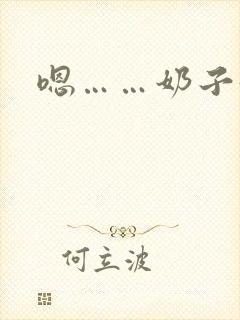 嗯……奶子
何立波